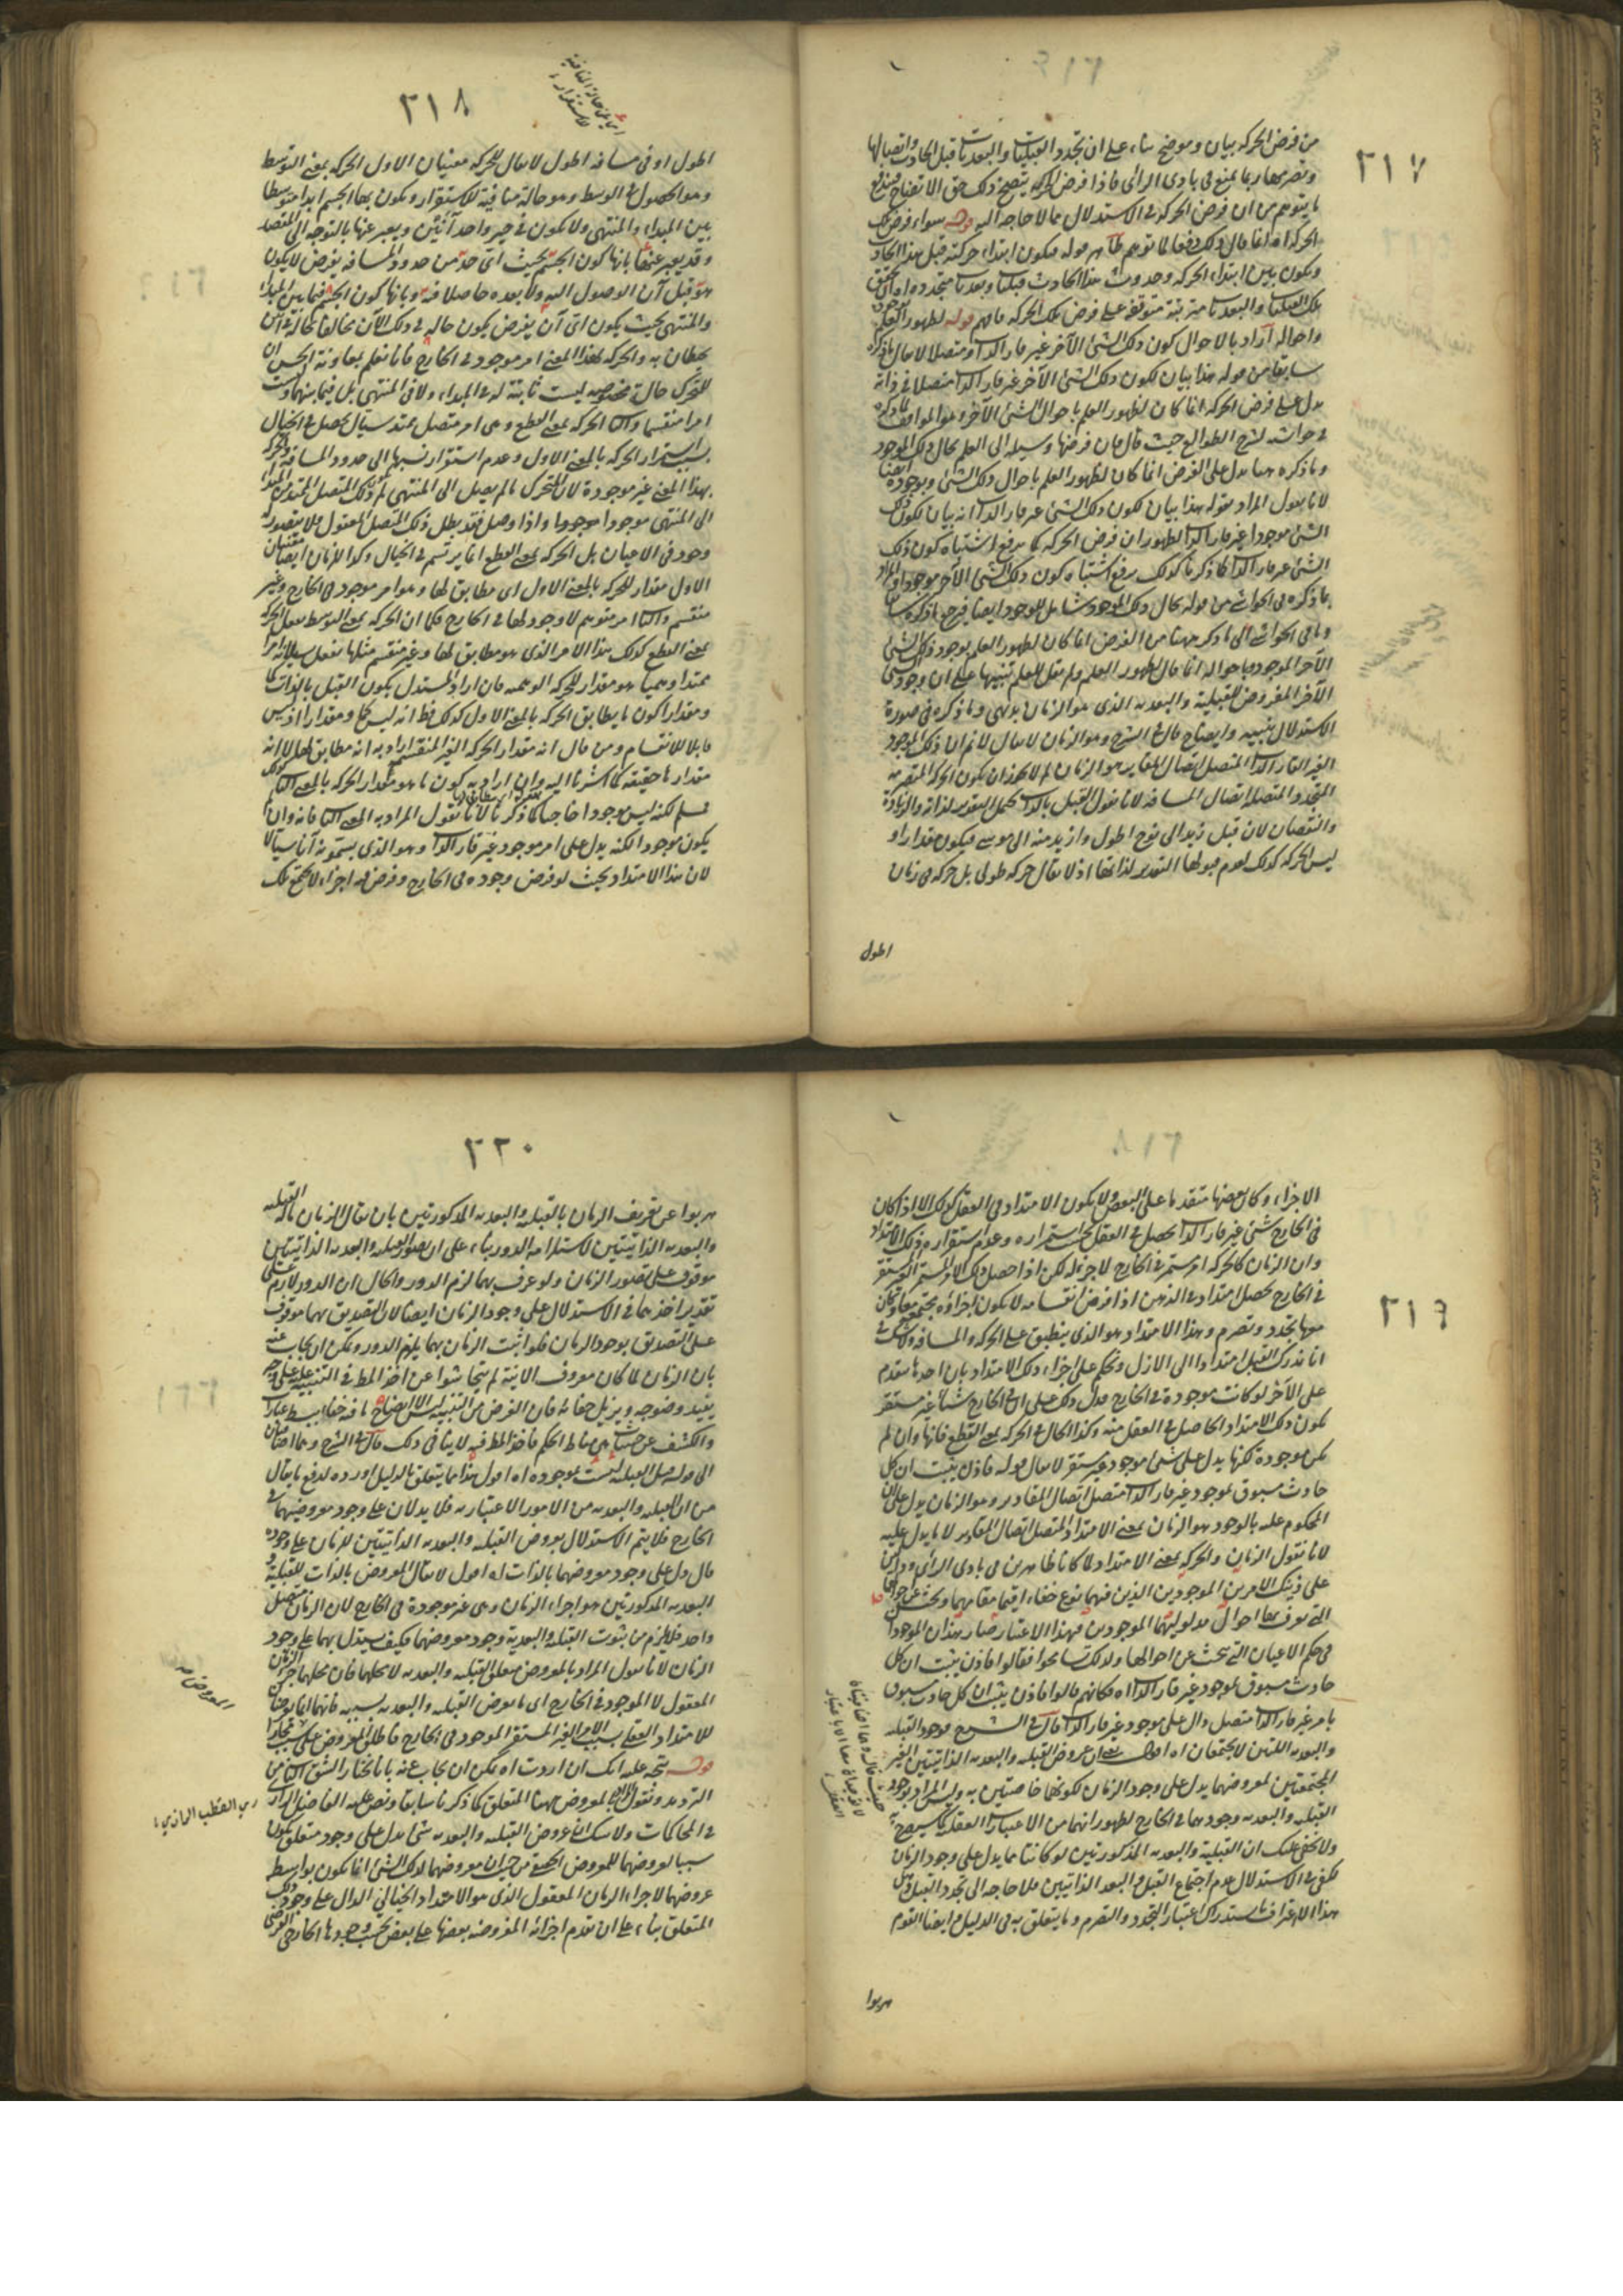 ٣١٧
من فرض الحركة بيان وموضح بناء على ان تجدد القبليات والبعديات قبل الحادث واتصالها
وتصرمها ربما يمنع في بادى الرأى فاذا فرض الحركة يتضح ذلك حق الاتضاح فيندفع
ما يتوهم من ان فرض الحركة في الاستدلال مما لا حاجة اليه قوله سواء فرض تلك
الحركة اه انما قال ذلك دفعا لما توهم ظاهر قوله فيكون ابتداء حركته قبل هذا الحادث
ويكون بين ابتداء الحركة وحدوث هذا الحادث قبليات وبعديات متجددة اه اى تحقق
تلك القبليات والبعديات مترتبة متوقفة على فرض تلك الحركة فافهم قوله لظهور العلم
واحواله اراد بالاحوال كون ذلك الشئ الآخر غير قار الذات ومتصلا لا يقال ما ذكره
سابقا من قوله هذا بيان لكون ذلك الشئ الآخر غير قار الذات متصلا في ذاته
يدل على فرض الحركة انما كان لظهور العلم باحوال الشئ الآخر وهو الموافق لما ذكره
في حواشيه لشرح الطوالع حيث قال فان فرضها وسيلة الى العلم بحال ذلك الموجود
وما ذكره ههنا يدل على الفرض انما كان لظهور العلم باحوال ذلك الشئ وبوجوده ايضا
لانا نقول المراد بقوله هذا بيان لكون ذلك الشئ غير قار الذات انه بيان لكون ذلك
الشئ موجودا غير قار الذات لظهور ان فرض الحركة كما يرفع اشتباه كون ذلك
الشئ غير قار الذات كما ذكرنا كذلك يرفع اشتباه كون ذلك الشئ الآخر موجودا والمراد
بما ذكره في الحواشى من قوله بحال ذلك الموجود شامل للوجود ايضا فيرجع ما ذكره سابقا
وما في الحواشى الى ما ذكره ههنا من الفرض انما كان لظهور العلم بوجود ذلك الشئ
الآخر الموجود وباحواله انما قال لظهور العلم ولم يقل للعلم تنبيها على ان وجود الشئ
الآخر المفروض للقبلية والبعدية الذى هو الزمان بديهى وما ذكره في صورة
الاستدلال تنبيه وايضاح قال في الشرح وهو الزمان لا يقال لا نم ان ذلك الموجود
الغير القار الذات المتصل اتصال المقادير هو الزمان لم لا يجوز ان يكون الحركة المتصرمة
المتجددة المتصلة اتصال المسافة لانا نقول القبل بالذات يحتمل التقدير لذاته والزيادة
والنقصان لان قبل زيد الى نوح اطول وازيد منه الى موسى فيكون مقدارا و
ليس الحركة كذلك لعدم قبولها التقدير لذاتها اذ لا يقال حركة طولى بل حركة في زمان
اطول
٣١٨
اطول او في مسافة اطول لا يقال للحركة معنيان الاول الحركة بمعنى التوسط
وهو الحصول في الوسط وهو حالة منافية للاستقرار ويكون بها الجسم ابدا متوسطا
بين المبداء والمنتهى ولا يكون في حيز واحد آنين ويعبر عنها بالتوجه الى المقصد
وقد يعبر عنها بانها كون الجسم بحيث اى حد من حدود المسافة يفرض لا يكون
هو قبل آن الوصول اليه ولا بعده حاصلا فيه وبانها كون الجسم فيما بين المبداء
والمنتهى بحيث يكون اى آن يفرض يكون حاله في ذلك الآن مخالفا لحاله في آنين
يحيطان به والحركة بهذا المعنى امر موجود في الخارج فانا نعلم بمعاونة الحس ان
للمتحرك حالة مخصوصة ليست ثابتة له في المبداء ولا في المنتهى بل فيما بينهما وليست
امرا منقسما والثانى الحركة بمعنى القطع وهى امر متصل ممتد سيال يحصل في الخيال
بسبب استمرار الحركة بالمعنى الاول وعدم استقرار نسبتها الى حدود المسافة والحركة
بهذا المعنى غير موجودة لان المتحرك ما لم يصل الى المنتهى لم يكن ذلك المتصل الممتد من المبدا
الى المنتهى موجودا بوجودها واذا وصل فقد بطل ذلك المتصل المعقول فلا يتصور له
وجود في الاعيان بل الحركة بمعنى القطع انما يرتسم في الخيال وكذا للزمان ايضا معنيان
الاول مقدار للحركة بالمعنى الاول اى مطابق لها وهو امر موجود في الخارج وغير
منقسم والثانى امر متوهم لا وجود لها في الخارج فكما ان الحركة بمعنى التوسط يفعل الحركة
بمعنى القطع كذلك هذا الامر الذى هو مطابق لها وغير منقسم مثلها يفعل بسيلانه امرا
ممتدا وهميا هو مقدار للحركة الوهمية فان اراد المستدل بكون القبل بالذات كما
ومقدارا كون ما يطابق الحركة بالمعنى الاول كذلك فظ انه ليس كما ومقدارا اذ ليس
قابلا للانقسام ومن قال انه مقدار الحركة الغير المنقسمة اراد به انه مطابق لها لا انه
مقدارها حقيقة كما اشرنا اليه وان اراد به كون ما هو مقدار الحركة بالمعنى الثانى كذلك
فسلم لكنه ليس موجودا خارجيا كما ذكرنا لانا نقول المراد به المعنى الثانى فانه وان لم
يكون موجودا لكنه يدل على امر موجود غير قار الذات وهو الذى يسمونه آنا سيالا
لان هذا الامتداد بحيث لو فرض وجوده في الخارج وفرض فيه اجزاء لا يجتمع تلك
٣١٩
الاجزاء وكان بعضها متقدما على البعض ولا يكون الامتداد في العقل كذلك الا اذا كان
في الخارج شئ غير قار الذات يحصل في العقل بحسب استمراره وعدم استقراره ذلك الامتداد
وان الزمان كالحركة امر مستمر في الخارج لا جزء له لكن اذا حصل ذلك الامر المستمر الغير المستقر
في الخارج يحصل امتداد في الذهن اذا فرض انقسامه لا يكون اجزاؤه مجتمعة معا وكان
معها تجدد وتصرم وهذا الامتداد هو الذى ينطبق على الحركة والمسافة ولا شك في
انا ندرك القبل امتدادا الى الازل ونحكم على اجزاء ذلك الامتداد بان احدها متقدم
على الآخر لو كانت موجودة في الخارج فدل ذلك على ان في الخارج شيئا غير مستقر
يكون ذلك الامتداد الحاصل في العقل منه وكذا الحال في الحركة بمعنى القطع فانها وان لم
تكن موجودة لكنها يدل على شئ موجود غير مستقر لا يقال قوله فاذن يثبت ان كل
حادث مسبوق بموجود غير قار الذات متصل اتصال المقادير وهو الزمان يدل على ان
المحكوم عليه بالوجود هو الزمان بمعنى الامتداد المتصل اتصال المقادير لا ما يدل عليه
لانا نقول الزمان والحركة بمعنى الامتداد لما كانا ظاهرين في بادى الرأى ودالين
على ذينك الامرين الموجودين الذين فيهما نوع خفاء اقيما مقامهما وبحث عن احوالهما
التى يعرف بها احوال مدلوليهما الموجودين فبهذا الاعتبار صار هذان الموجودان
في حكم الاعيان التى يبحث عن احوالها ولذلك تسامحوا فقالوا فاذن يثبت ان كل
حادث مسبوق بموجود غير قار الذات اه فكانهم قالوا فاذن يثبت ان كل حادث مسبوق
بامر غير قار الذات متصل دال على موجود غير قار الذات قال في الشرح فوجود القبلية
والبعدية اللتين لا يجتمعان اه اقول يعنى ان عروض القبلية والبعدية الذاتيتين الغير
المجتمعتين لمعروضهما يدل على وجود الزمان لكونهما خاصتين به وليس المراد بوجود
القبلية والبعدية وجودهما في الخارج لظهور انهما من الاعتبارات العقلية كما سيصرح به
ولا يخفى عليك ان القبلية والبعدية المذكورتين لو كانتا مما يدل على وجود الزمان
يكفى في الاستدلال عدم اجتماع القبل والبعد الذاتيتين فلا حاجة الى تجدد القبل
هذا الاعتراف استدراك اعتبار التجدد والتصرم وما يتعلق به في الدليل وايضا القوم
هربوا
٣٢٠
هربوا عن تعريف الزمان بالقبلية والبعدية المذكورتين بان يقال الزمان ماله القبلية
والبعدية الذاتيتين لاستلزامه الدور بناء على ان تصور القبلية والبعدية الذاتيتين
موقوف على تصور الزمان ولو عرف بهما لزم الدور والحال ان الدور لازم على
تقدير اخذهما في الاستدلال على وجود الزمان ايضا لان التصديق بهما موقوف
على التصديق بوجود الزمان فلو اثبت الزمان بهما يلزم الدور ويمكن ان يجاب عنه
بان الزمان لما كان معروف الانية لم يتحاشوا عن اخذ المط في التنبيه عليه على وجه
يفيد وضوحه ويزيل خفائه فان الغرض من التنبيه ليس الا ايضاح ما فيه خفاء ببسط عبارات
والكشف عن حيثيات هى مناط الحكم فاخذ المط فيه لا ينافى ذلك قال في الشرح وهما اضافيتان
الى قوله قبل القبلية ليست بموجودة اه اقول هذا مما يتعلق بالدليل اورده لدفع ما يقال
من ان القبلية والبعدية من الامور الاعتبارية فلا يدلان على وجود معروضيهما في
الخارج فلا يتم الاستدلال بعروض القبلية والبعدية الذاتيتين للزمان على وجوده
قال دل على وجود معروضهما بالذات اه اقول لا يقال المعروض بالذات للقبلية و
البعدية المذكورتين هو اجزاء الزمان وهى غير موجودة في الخارج لان الزمان متصل
واحد فلا يلزم من ثبوت القبلية والبعدية وجود معروضهما فكيف يستدل بهما على وجود
الزمان لانا نقول المراد بالمعروض متعلق القبلية والبعدية لا محلهما فان محلهما جزء الزمان
المعقول لا الموجود في الخارج اى ما يعرض القبلية والبعدية بسببه فانهما انما يعرضان
للامتداد العقلى بسبب الامر الغير المستقر الموجود في الخارج فاطلق المعروض على سببه مجازا
قوله يتجه عليه انك ان اردت اه يمكن ان يجاب عنه بانا نختار الشق الثانى من
الترديد ونقول المراد بالمعروض ههنا المتعلق كما ذكرنا سابقا ونص عليه الفاضل الرازى
في المحاكمات ولا شك ان عروض القبلية والبعدية شئ يدل على وجود متعلق يكون
سببا لعروضهما للمعروض الحقيقى من حيث ان معروضهما لذلك الشئ انما يكون بواسطة
عروضهما لاجزاء الزمان المعقول الذى هو الامتداد الخيالى الدال على وجود ذلك
المتعلق بناء على ان تقدم اجزائه المفروضة بعضها على بعض بحسب وجودها الخارجى الفرضى
المعروض
اى القطب الرازى